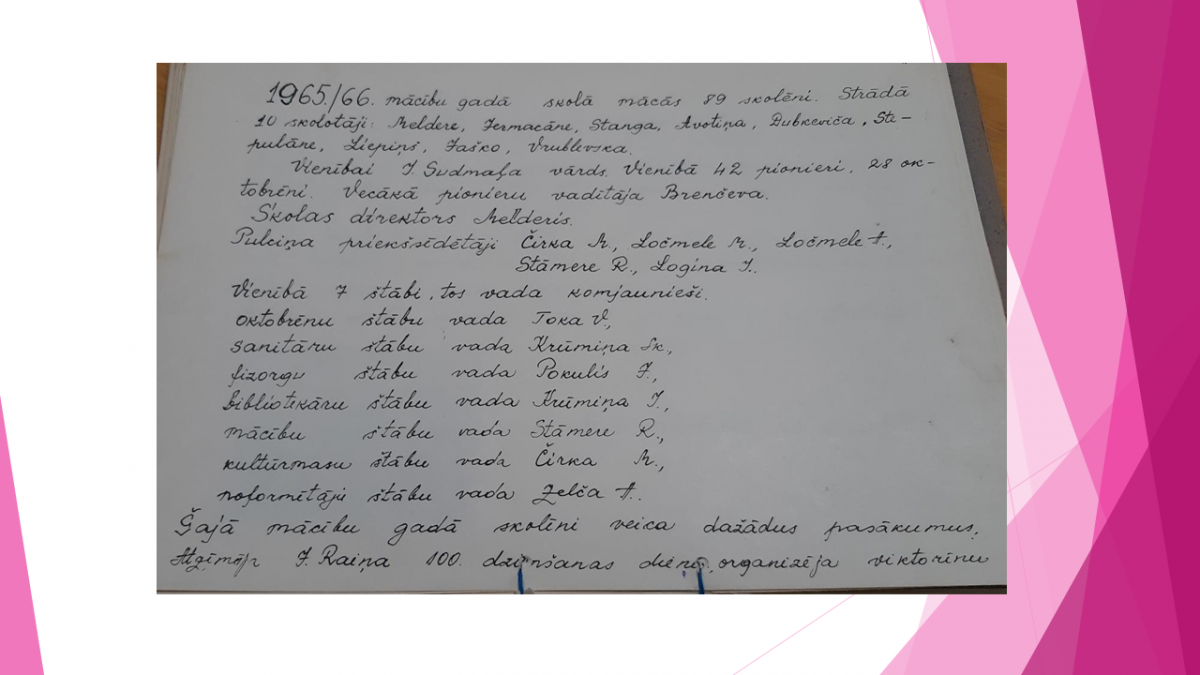 1965./66. mācību gadā skolā mācās 89 skolēni. Strādā
10 skolotāji: Meldere, Jermacāne, Stanga, Avotiņa, Dubkeviča, Ste-
pulāne, Liepiņš, Jaško, Vrublevska.
Vienībai J. Sudmaļa vārds. Vienībā 42 pionieri, 28 ok-
tobrēni. Vecākā pionieru vadītāja Brenčeva.
Skolas direktors Melderis.
Pulciņa priekšsēdētāji Čirka M., Ločmele M., Ločmele A.,
Stāmere R., Logina J..
Vienībā 7 štābi, tos vada komjaunieši.
oktobrēnu štābu vada Toka V.,
sanitāru štābu vada Krūmiņa Sk.,
fizorgu štābu vada Pokulis J.,
bibliotekāru štābu vada Krūmiņa J.,
mācību štābu vada Stāmere R.,
kultūrmasu štābu vada Čirka M.,
noformētāju štābu vada Zelča A..
Šajā mācību gadā skolēni veica dažādus pasākumus.
J. Raiņa 100. dzimšanas dienu, organizēja viktorīnu